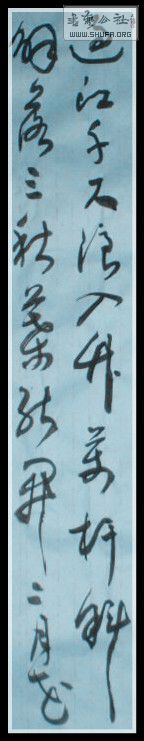 過江千尺浪入竹萬杆斜
解落三秋葉能開二月花
书法公社
WWW.SHUFA.ORG